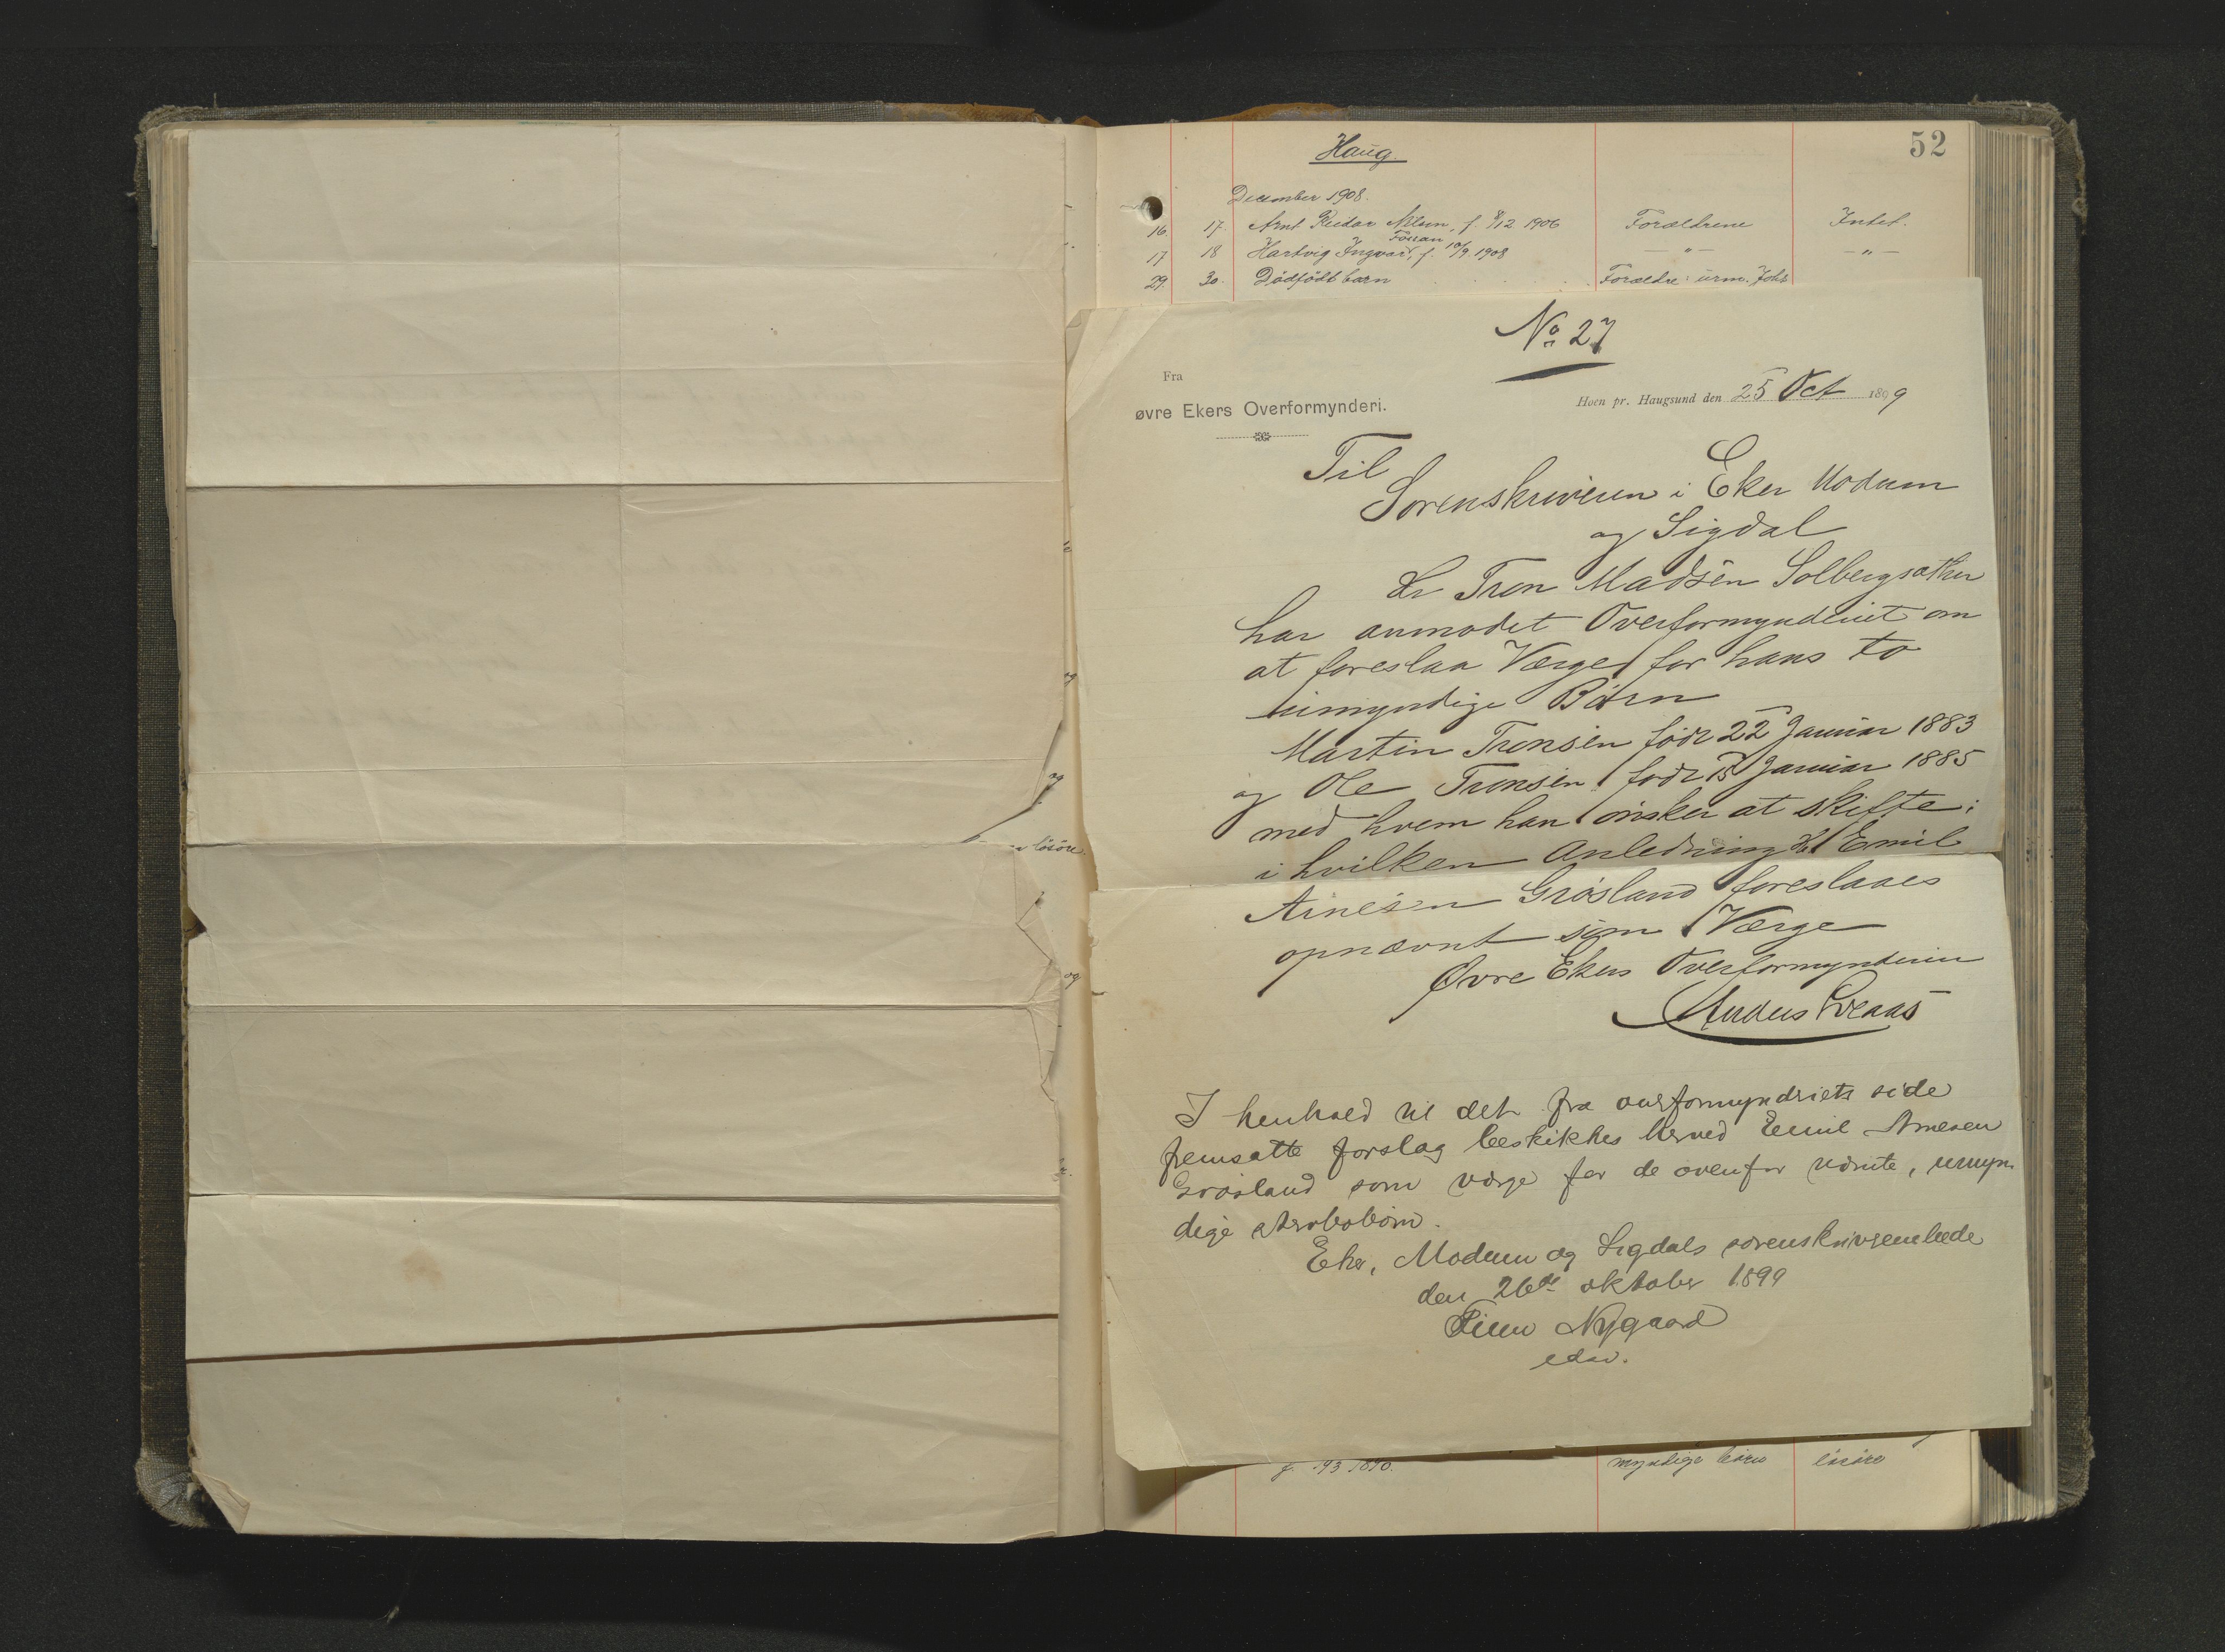 Haug.
52
December 1908.
16. 17. Arnt Reidar Nilsen, f. 8/12 1906 Forældrene Intet.
Fossan
17 18 Hartvig Ingvar, f. 10/9. 1908 — " — — " —
29. 30. Dödfödt barn Forældre: urm. Joh
No 27
Fra
øvre Ekers Overformynderi.
Hoen pr. Haugsund den 25 Oct 1899
Til
Sorenskriveren i Eker Modum
og Sigdal
Hr Tron Madsen Solbergsæther
har anmodet Overformynderiet om
at foreslaa Værge for hans to
umyndige Børn
Martin Tronsen född 22 Januar 1883
og Ole Tronsen född 15 Januar 1885
med hvem han ønsker at skifte;
i hvilken Anledning Hr Emil
Arnesen Grøsland foreslaaes
opnævnt som Værge
Øvre Ekers Overformynderi
Anders
I henhold til det fra overformynderiets side
fremsatte forslag beskikkes herved Emil Arnesen
Grøsland som værge for de ovenfor nævnte, umyn
dige
Eker, Modum og Sigdals sorenskriverembede
den 26de oktober 1899
Finn Nygaard
edsv.
løsøre
og
og
f. 19/3 1890. myndige börn lösöre